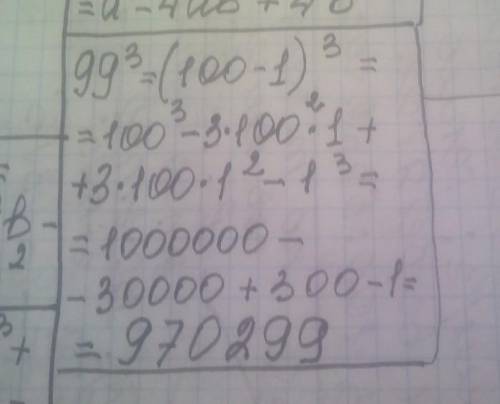 =a-4ab+4b
99³=(100-1)³=
=100³-3·100²·1+
+3·100·1²-1³=
в-
2
=1000000-
-30000+300-1=
³+
=970299